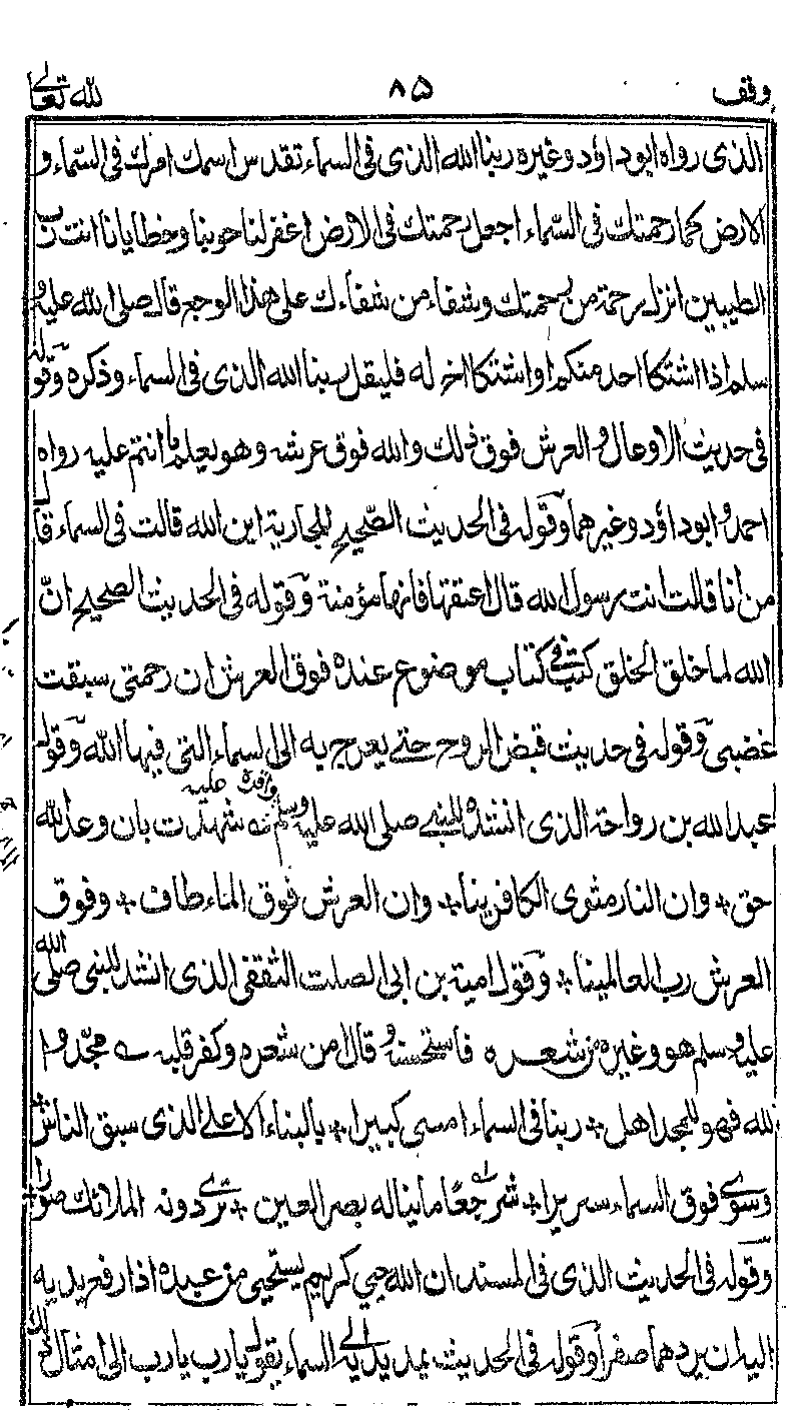 وقف ۸۵ لله تعالے
الذی رواه ابو داؤد وغیره ربنا الله الذی فی السماء تقدس اسمك امرك فی السّماء و
الارض كما رحمتك فی السّماء اجعل رحمتك فی الارض اغفر لنا حوبنا وخطایانا انت رب
الطیبین انزل رحمة من رحمتك وشفاء من شفاءك علی هذا الوجع قال صلی الله علیه و
سلم اذا اشتكا احد منكم او اشتكا اخ له فلیقل ربنا الله الذی فی السماء وذكره وقوله
فی حدیث الاوعال والعرش فوق ذلك والله فوق عرشه وهو یعلم ما انتم علیه رواه
احمد وابو داؤد وغیرهما وقوله فی الحدیث الصّحیح للجاریة این الله قالت فی السماء قال
من انا قالت انت رسول الله قال اعتقها فانها مؤمنة وقوله فی الحدیث الصحیح انّ
الله لما خلق الخلق كتب فی كتاب موضوع عنده فوق العرش ان رحمتی سبقت
غضبی وقوله فی حدیث قبض الروح حتے یعرج به الی السماء التی فیها الله وقول
عبد الله بن رواحة الذی انشده للنبے صلی الله علیه وسلم واقره علیه شهدت بان وعد الله
حق ٭ وان النار مثوی الكافرینا ٭ وان العرش فوق الماء طاف ٭ وفوق
العرش رب العالمینا ٭ وقول امیة بن ابی الصلت الثقفی الذی انشد للنبی صلی الله
علیه وسلم هو وغیره من شعره فاستحسنه وقال امن شعره وكفر قلبه مجّدوا
لله فهو للمجد اهل ٭ ربنا فی السماء امسی كبیرا ٭ بالبناء الاعلے الذی سبق الناس ٭
وسوّی فوق السماء سریرا ٭ شرجعًا ما یناله بصر العین ٭ تری دونه الملائك صورا ٭
وقوله فی الحدیث الذی فی المسند ان الله حیی كریم یستحیی من عبده اذا رفع یدیه
الیه ان یردهما صفرا وقوله فی الحدیث یمد یدیه الی السماء یقول یارب یارب الی امثال ذلك